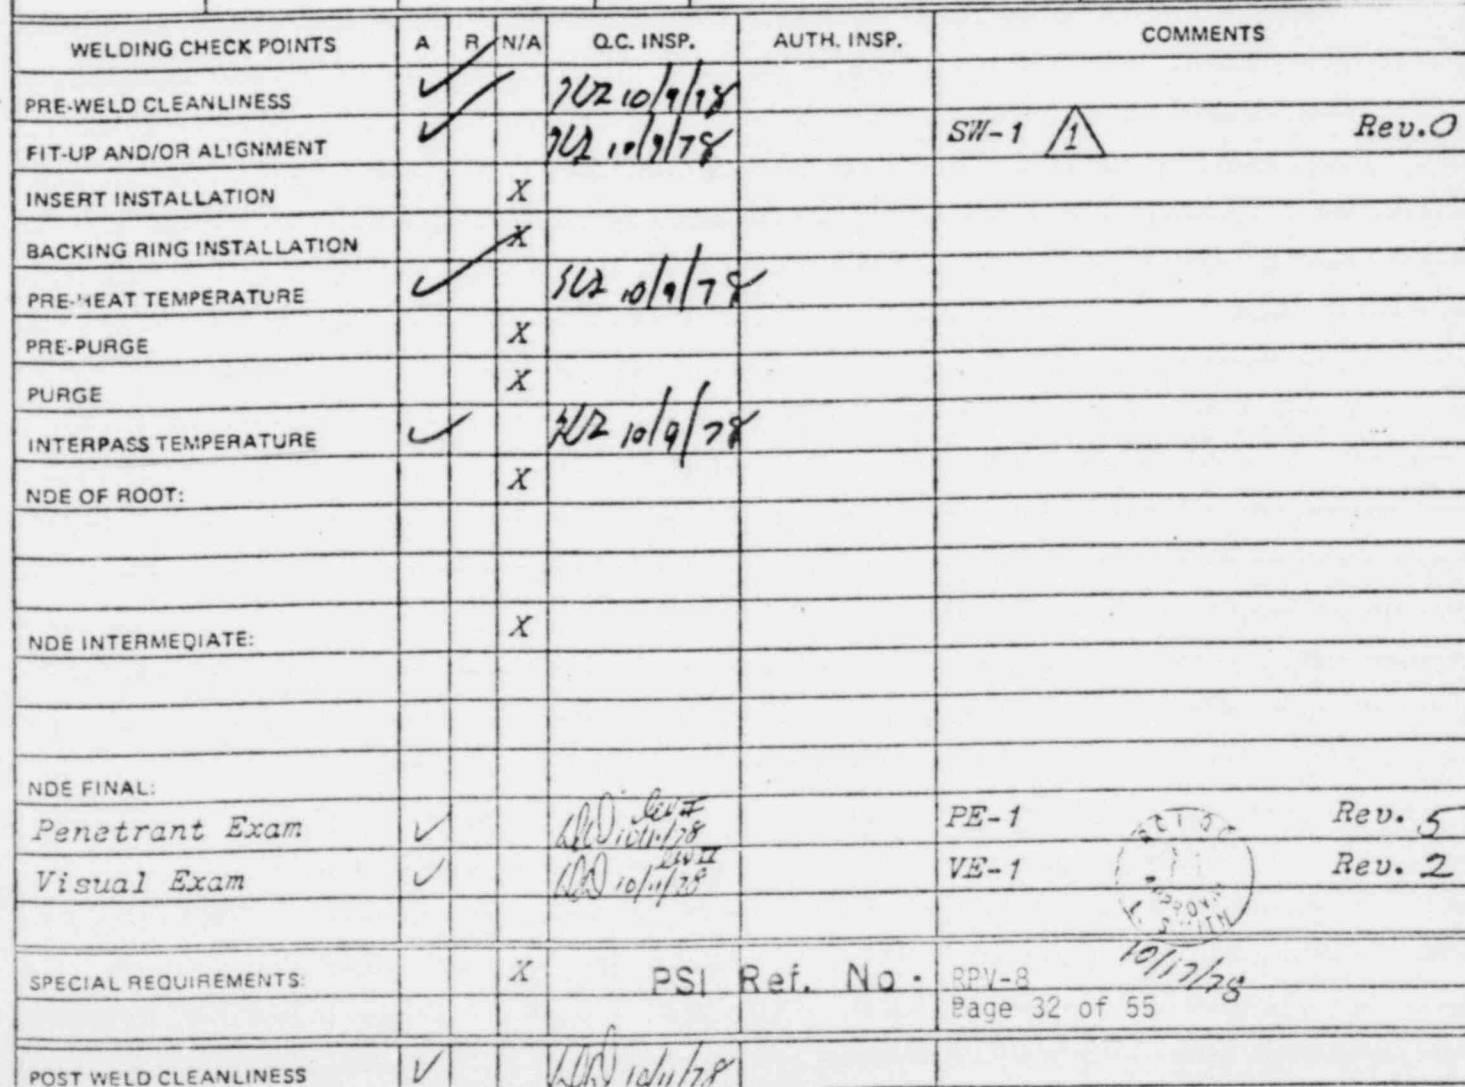 WELDING CHECK POINTS A R N/A Q.C. INSP. AUTH. INSP. COMMENTS
PRE-WELD CLEANLINESS ✓ 10/9/78
FIT-UP AND/OR ALIGNMENT ✓ 10/9/78 SW-1 1 Rev.0
INSERT INSTALLATION X
BACKING RING INSTALLATION X
PRE-HEAT TEMPERATURE ✓ 10/9/78
PRE-PURGE X
PURGE X
INTERPASS TEMPERATURE ✓ 10/9/78
NDE OF ROOT: X
NDE INTERMEDIATE: X
NDE FINAL:
Penetrant Exam ✓ 10/11/78 lev II PE-1 Rev. 5
Visual Exam ✓ 10/11/78 lev II VE-1 Rev. 2
SMITH
10/17/78
SPECIAL REQUIREMENTS: X PSI Ref. No. RPV-8
Page 32 of 55
POST WELD CLEANLINESS ✓ 10/11/78